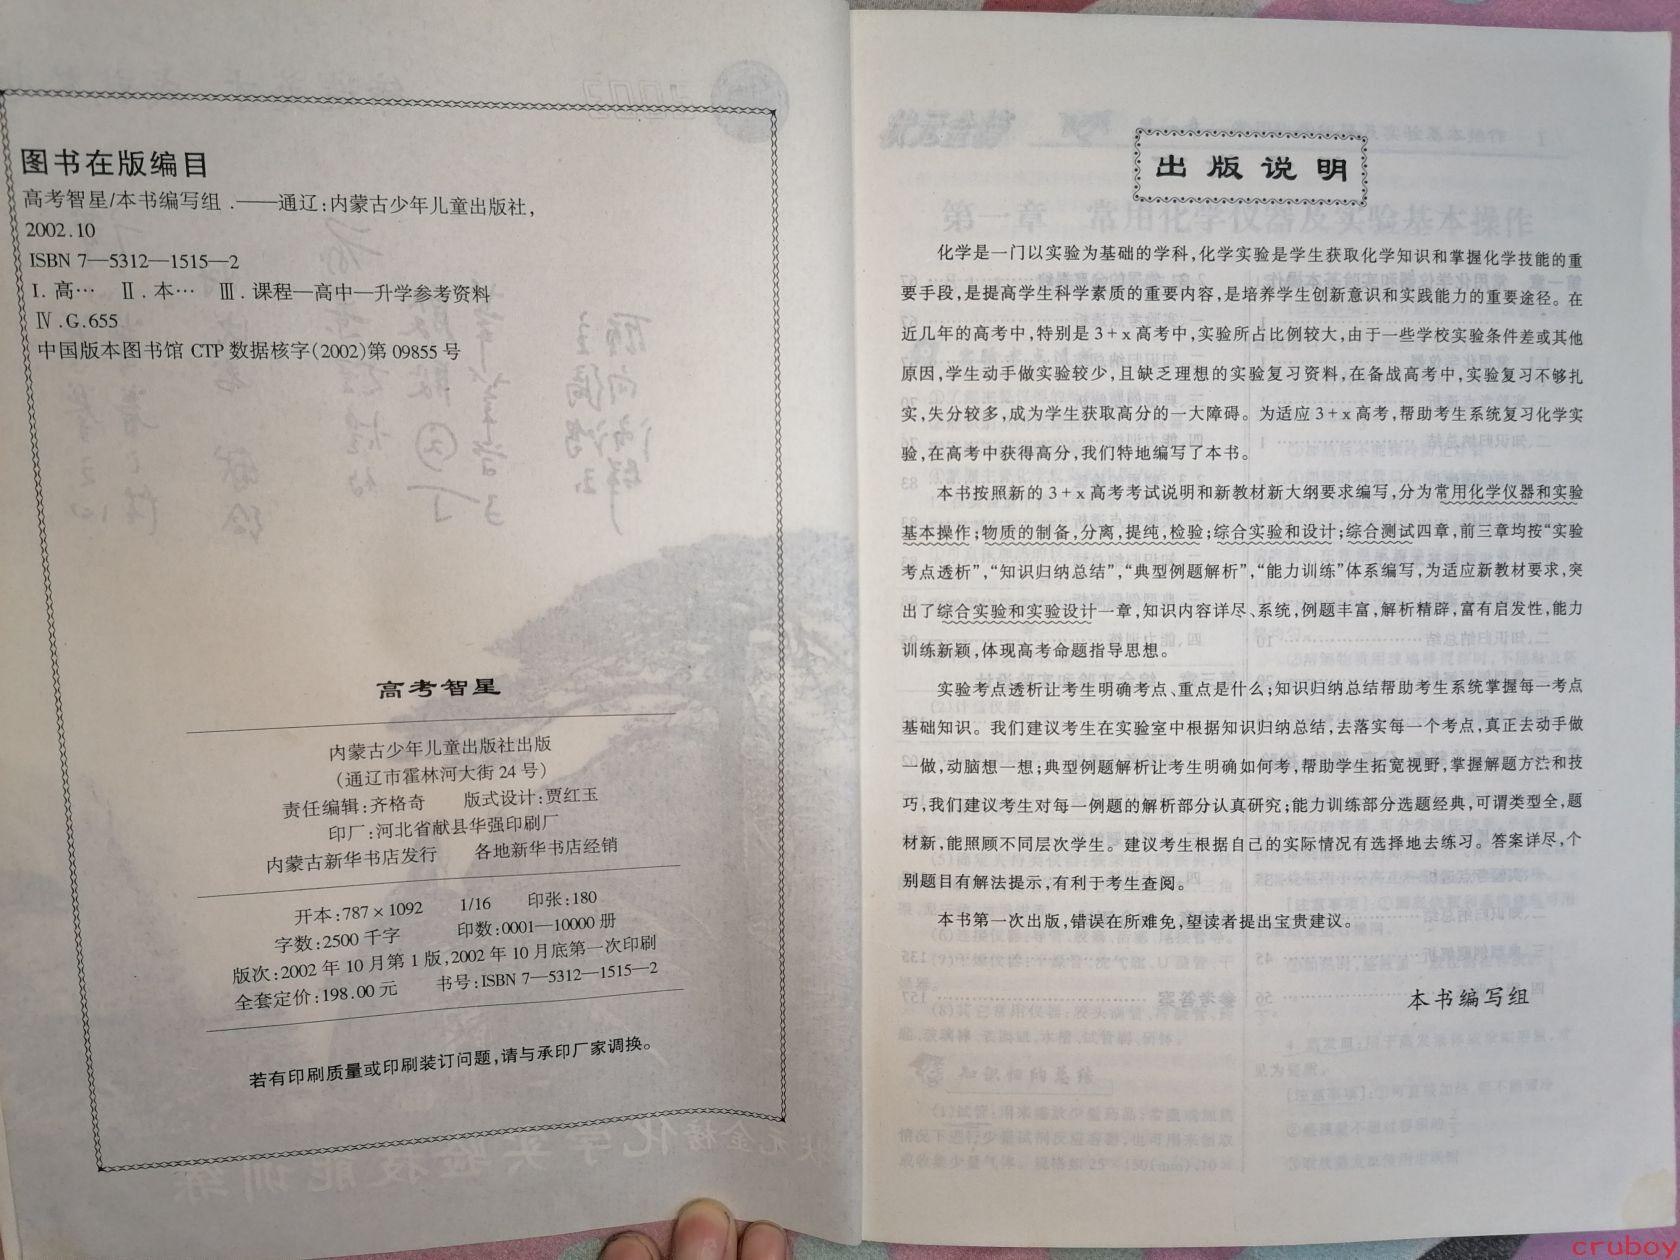 图书在版编目
高考智星/本书编写组.——通辽:内蒙古少年儿童出版社,
2002.10
ISBN 7—5312—1515—2
Ⅰ.高… Ⅱ.本… Ⅲ.课程—高中—升学参考资料
Ⅳ.G.655
中国版本图书馆 CTP 数据核字(2002)第 09855 号
高考智星
内蒙古少年儿童出版社出版
(通辽市霍林河大街 24 号)
责任编辑:齐格奇 版式设计:贾红玉
印厂:河北省献县华强印刷厂
内蒙古新华书店发行 各地新华书店经销
开本:787×1092 1/16 印张:180
字数:2500 千字 印数:0001—10000 册
版次:2002 年 10 月第 1 版,2002 年 10 月底第一次印刷
全套定价:198.00 元 书号:ISBN 7—5312—1515—2
若有印刷质量或印刷装订问题,请与承印厂家调换。
出版说明
化学是一门以实验为基础的学科,化学实验是学生获取化学知识和掌握化学技能的重
要手段,是提高学生科学素质的重要内容,是培养学生创新意识和实践能力的重要途径。在
近几年的高考中,特别是 3+x 高考中,实验所占比例较大,由于一些学校实验条件差或其他
原因,学生动手做实验较少,且缺乏理想的实验复习资料,在备战高考中,实验复习不够扎
实,失分较多,成为学生获取高分的一大障碍。为适应 3+x 高考,帮助考生系统复习化学实
验,在高考中获得高分,我们特地编写了本书。
本书按照新的 3+x 高考考试说明和新教材新大纲要求编写,分为常用化学仪器和实验
基本操作;物质的制备,分离,提纯,检验;综合实验和设计;综合测试四章,前三章均按“实验
考点透析”,“知识归纳总结”,“典型例题解析”,“能力训练”体系编写,为适应新教材要求,突
出了综合实验和实验设计一章,知识内容详尽、系统,例题丰富,解析精辟,富有启发性,能力
训练新颖,体现高考命题指导思想。
实验考点透析让考生明确考点、重点是什么;知识归纳总结帮助考生系统掌握每一考点
基础知识。我们建议考生在实验室中根据知识归纳总结,去落实每一个考点,真正去动手做
一做,动脑想一想;典型例题解析让考生明确如何考,帮助学生拓宽视野,掌握解题方法和技
巧,我们建议考生对每一例题的解析部分认真研究;能力训练部分选题经典,可谓类型全,题
材新,能照顾不同层次学生。建议考生根据自己的实际情况有选择地去练习。答案详尽,个
别题目有解法提示,有利于考生查阅。
本书第一次出版,错误在所难免,望读者提出宝贵建议。
本书编写组
cruboy